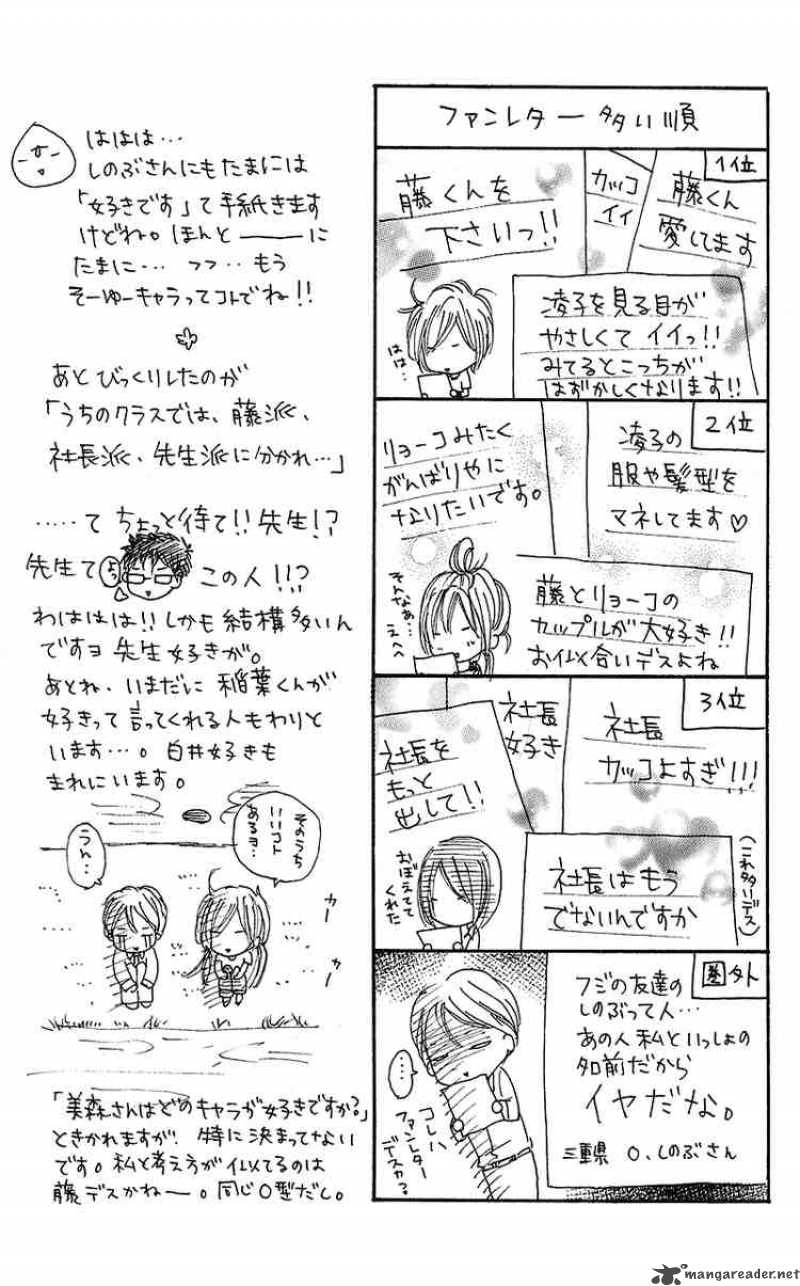 ファンレター多い順
1位
藤くん
愛してます
カッコ
イイ
藤くんを
下さいっ!!
凌子を見る目が
やさしくてイイっ!!
みてるとこっちが
はずかしくなります!!
はは…
2位
凌子の
服や髪型を
マネしてます♡
リョーコみたく
がんばりやに
なりたいです。
藤とリョーコの
カップルが大好き!!
お似合いデスよね
そんなぁ…
えへへ
3位
社長
カッコよすぎ!!!
社長
好き
社長を
もっと
出して!!
社長はもう
でないんですか
(これ多いデス)
おぼえてて
くれた
圏外
フジの友達の
しのぶって人…
あの人私といっしょの
名前だから
イヤだな。
三重県 O、しのぶさん
…
コレハ
ファンレター
デスカ?
ははは…
しのぶさんにもたまには
「好きです」て手紙きます
けどね。ほんと―――に
たまに… フフ‥もう
そーゆーキャラってコトでね!!
あとびっくりしたのが
「うちのクラスでは、藤派、
社長派、先生派に分かれ…」
……て ちょっと待て!!先生!?
先生て この人!!?
よっ
わははは!!しかも結構多いん
ですヨ 先生好きが。
あとね、いまだに稲葉くんが
好きって言ってくれる人もわりと
います…。白井好きも
まれにいます。
そのうち
いいコト
あるヨ…
うん…
カー
カー
「美森さんはどのキャラが好きですか?」
ときかれますが、特に決まってない
です。私と考え方が似てるのは
藤デスかねー。同じO型だし。
mangareader.net